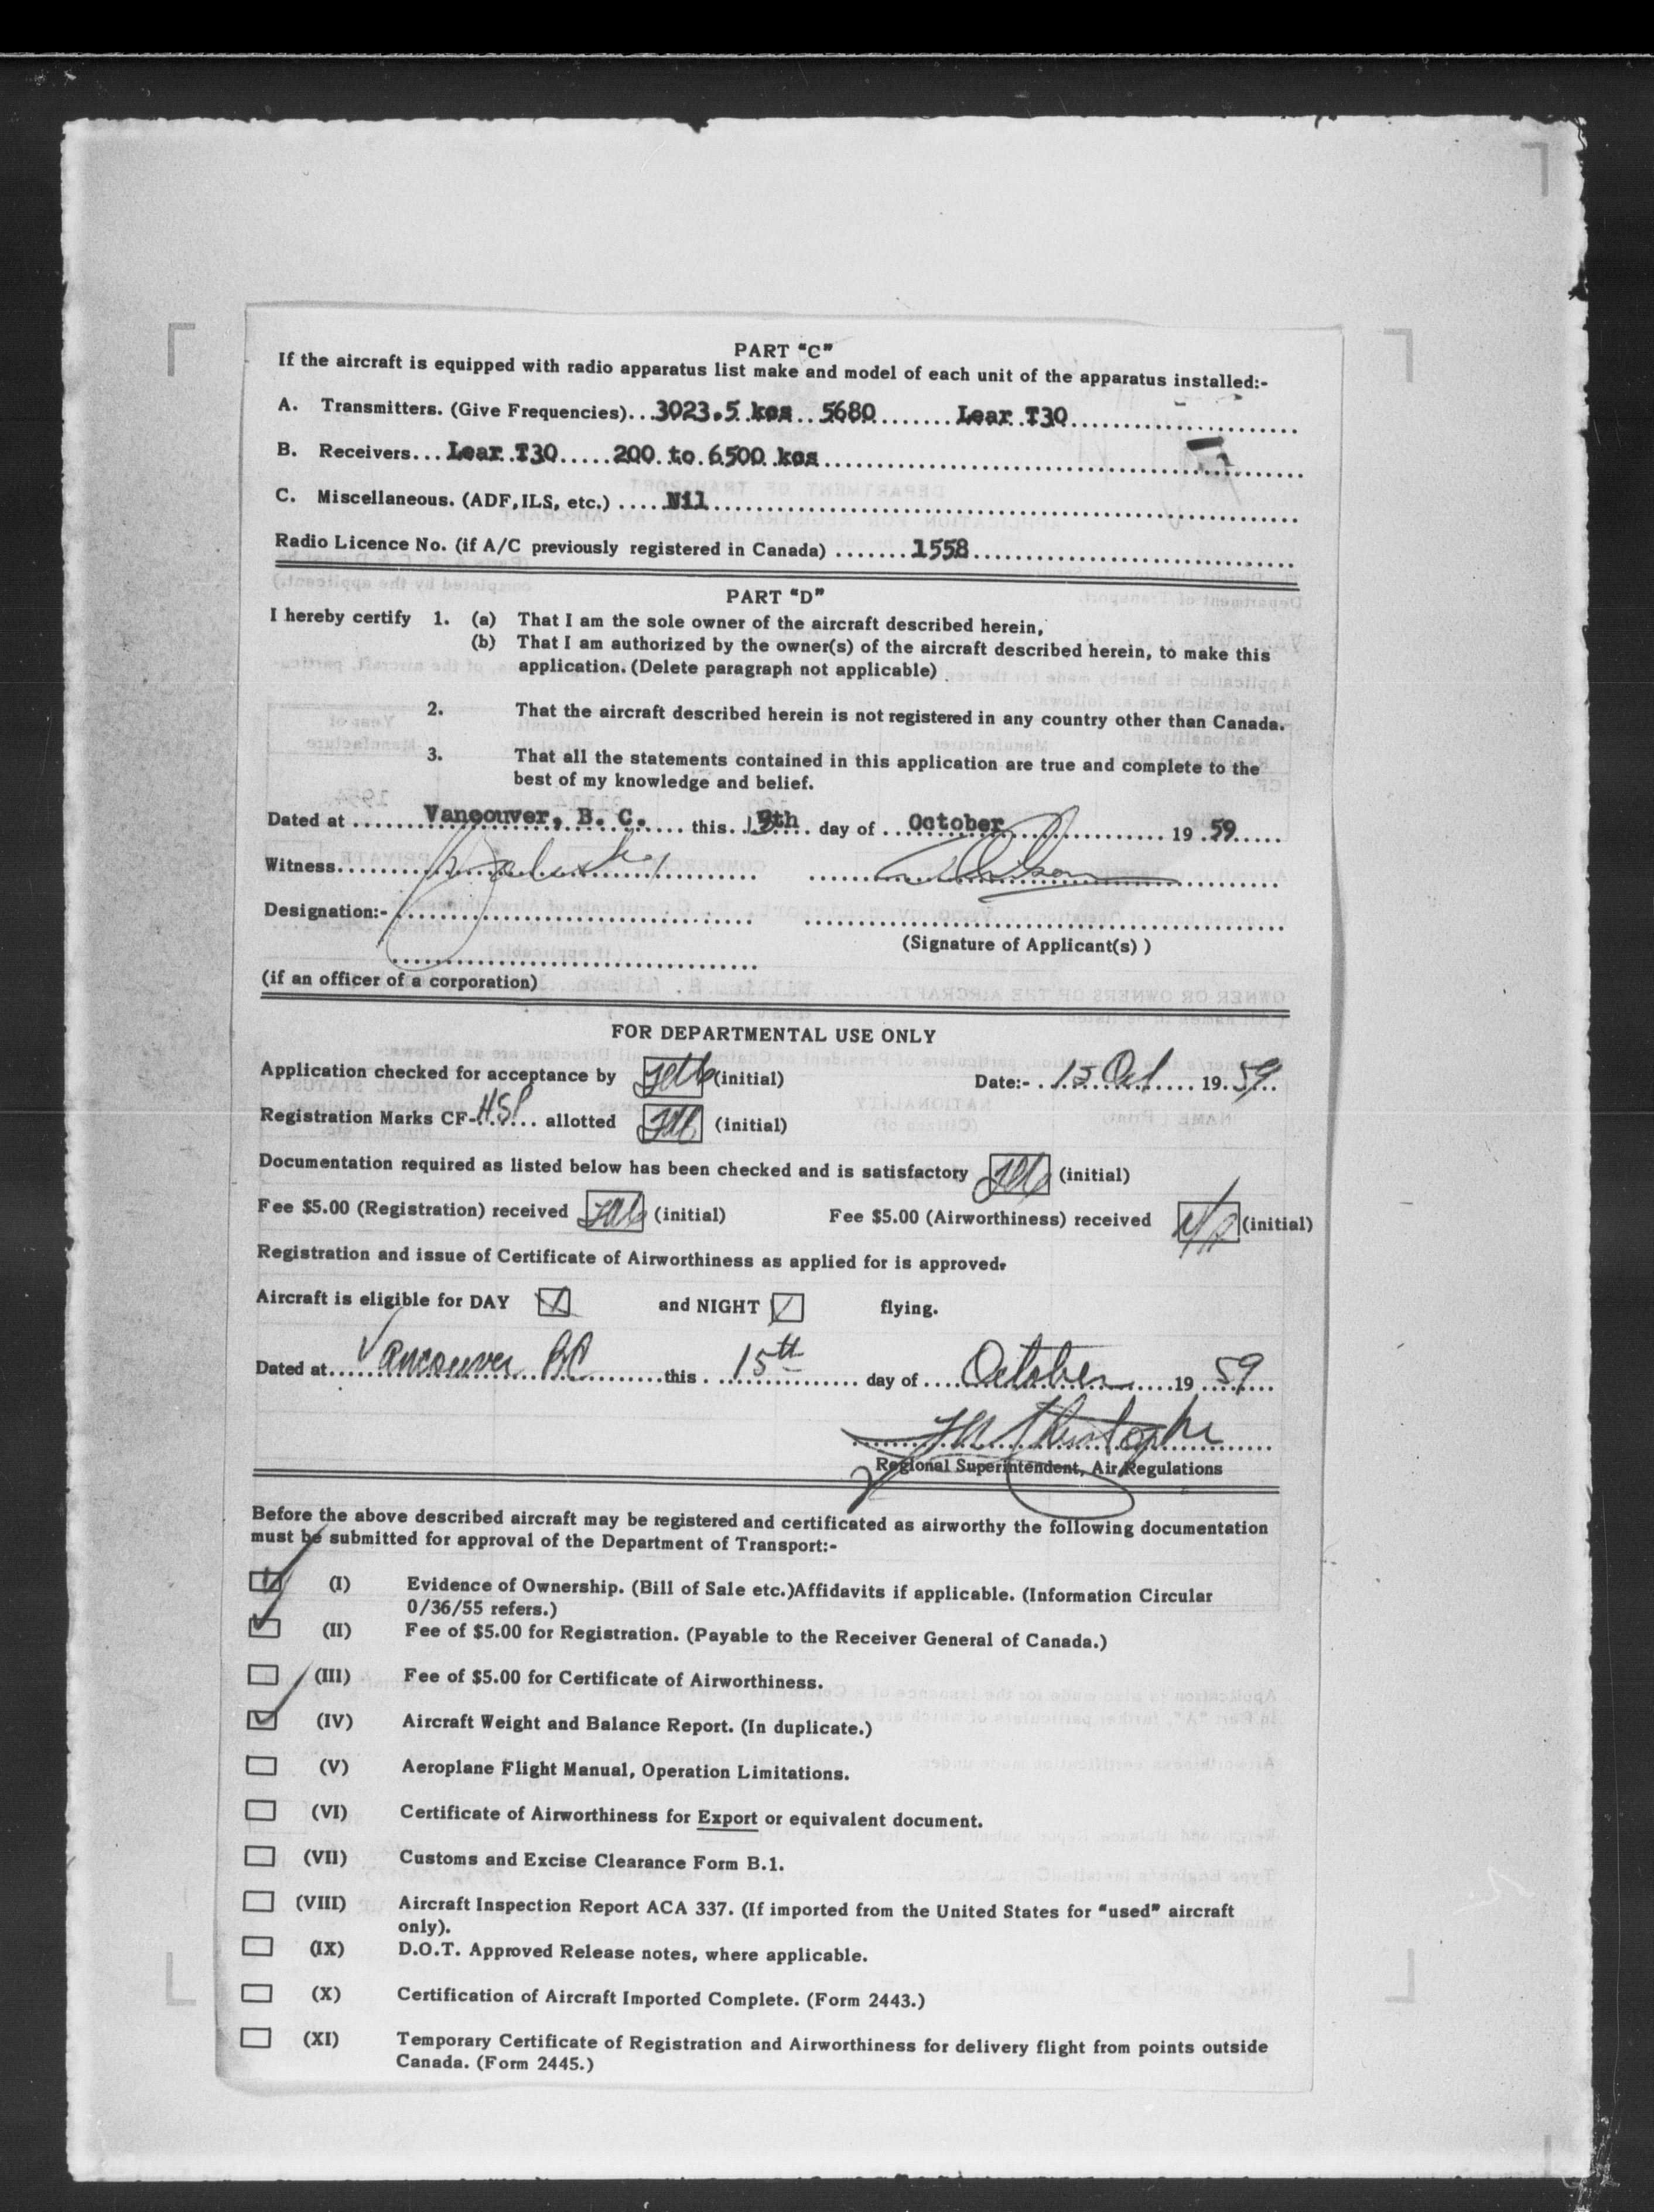 PART "C"
If the aircraft is equipped with radio apparatus list make and model of each unit of the apparatus installed:-
A. Transmitters. (Give Frequencies)...3023.5 kcs..5680.......Lear T30
B. Receivers...Lear T30.....200 to 6500 kcs
C. Miscellaneous. (ADF, ILS, etc.) .....Nil
Radio Licence No. (if A/C previously registered in Canada) .......1558
PART "D"
I hereby certify 1. (a) That I am the sole owner of the aircraft described herein,
(b) That I am authorized by the owner(s) of the aircraft described herein, to make this
application. (Delete paragraph not applicable)
2. That the aircraft described herein is not registered in any country other than Canada.
3. That all the statements contained in this application are true and complete to the
best of my knowledge and belief.
Dated at ......Vancouver, B. C. .... this ... day of ...October.......... 19.59.....
Witness
Designation:-
(Signature of Applicant(s) )
(if an officer of a corporation)
FOR DEPARTMENTAL USE ONLY
Application checked for acceptance by (initial) Date:- . 15 Oct .... 19.59..
Registration Marks CF-HSP... allotted (initial)
Documentation required as listed below has been checked and is satisfactory (initial)
Fee $5.00 (Registration) received (initial) Fee $5.00 (Airworthiness) received N/A (initial)
Registration and issue of Certificate of Airworthiness as applied for is approved.
Aircraft is eligible for DAY and NIGHT flying.
Dated at...Vancouver BC.....this . 15th ..... day of ....October....19 59...
Regional Superintendent, Air Regulations
Before the above described aircraft may be registered and certificated as airworthy the following documentation
must be submitted for approval of the Department of Transport:-
(I) Evidence of Ownership. (Bill of Sale etc.)Affidavits if applicable. (Information Circular
0/36/55 refers.)
(II) Fee of $5.00 for Registration. (Payable to the Receiver General of Canada.)
(III) Fee of $5.00 for Certificate of Airworthiness.
(IV) Aircraft Weight and Balance Report. (In duplicate.)
(V) Aeroplane Flight Manual, Operation Limitations.
(VI) Certificate of Airworthiness for Export or equivalent document.
(VII) Customs and Excise Clearance Form B.1.
(VIII) Aircraft Inspection Report ACA 337. (If imported from the United States for "used" aircraft
only).
(IX) D.O.T. Approved Release notes, where applicable.
(X) Certification of Aircraft Imported Complete. (Form 2443.)
(XI) Temporary Certificate of Registration and Airworthiness for delivery flight from points outside
Canada. (Form 2445.)